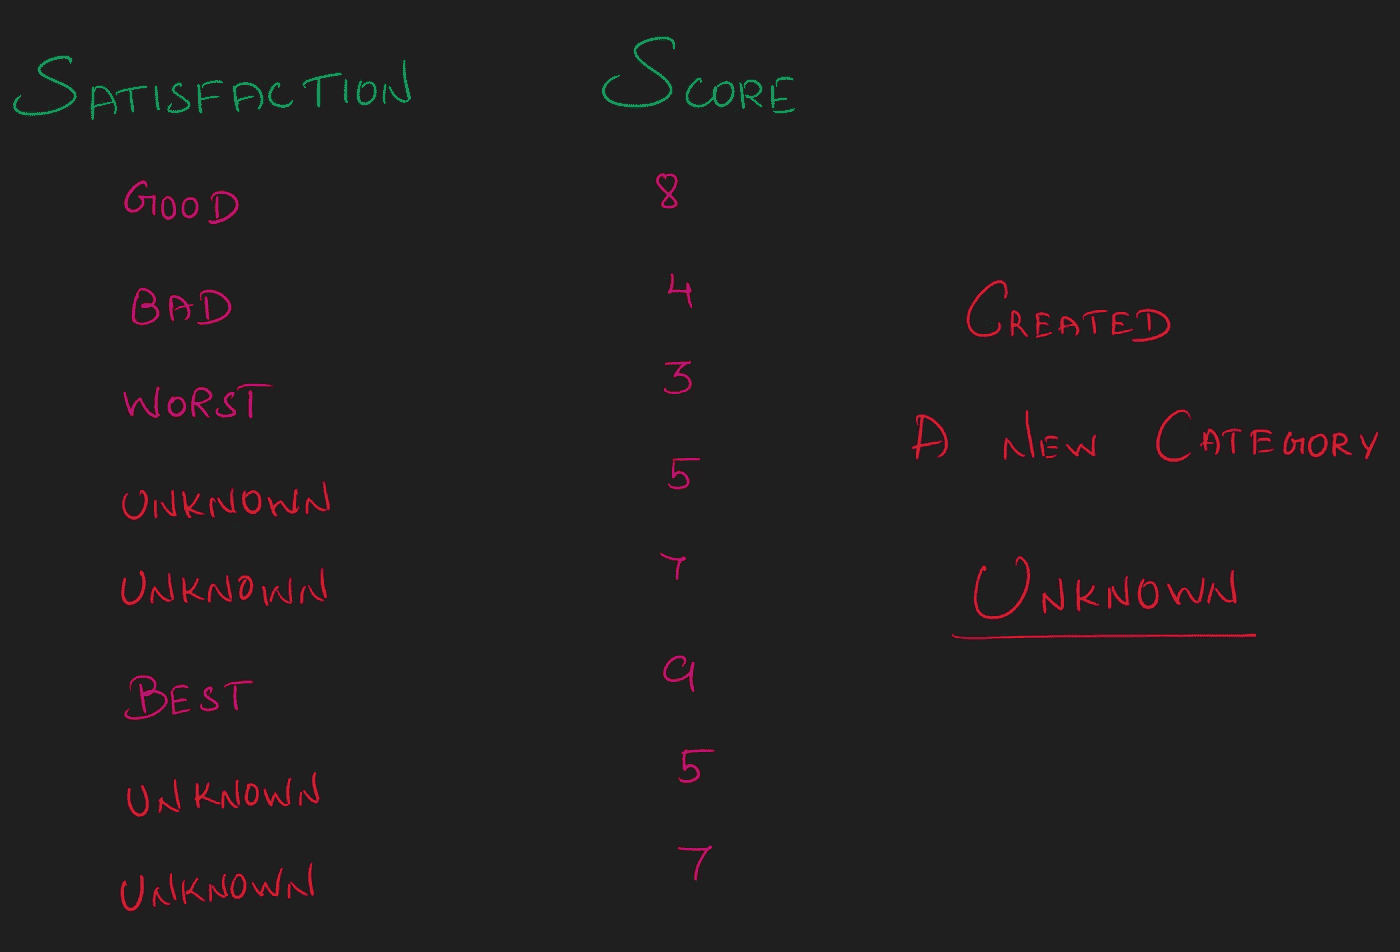 SATISFACTION SCORE
GOOD 8
BAD 4
WORST 3
UNKNOWN 5
UNKNOWN 7
BEST 9
UNKNOWN 5
UNKNOWN 7
CREATED
A NEW CATEGORY
UNKNOWN